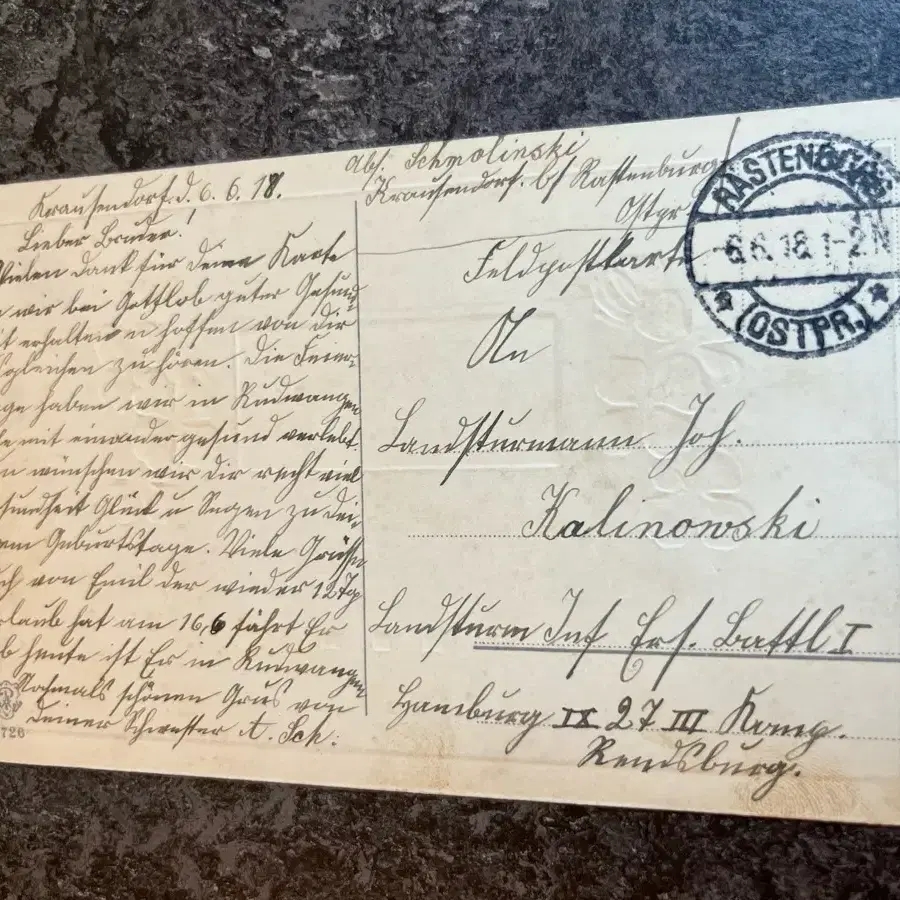 Krausendorf. d. 6. 6. 18.
Lieber Bruder!
Vielen Dank für deine Karte
wir bei Gottlob guter Gesund-
it erhalten u hoffen von dir
sgleichen zu hören. Die Feier-
ge haben wir in Rudwangen
e mit einander gesund verlebt.
n wünschen wir dir recht viel
sundheit Glück u Segen zu dei-
em Geburtstage. Viele Grüsse
ch von Emil der wieder 12 Tg
rlaub hat am 16,6 fährt Er
b heute ist Er in Rudwangen
Nochmals schönen Grus von
deiner Schwester A. Sch:
726
Abs. Schmolinski
Krausendorf. b/ Rastenburg
Ostpr.
Feldpostkarte
An
Landsturmann Joh.
Kalinowski
Landsturm Inf Ers. Battl I
Hamburg IX 27 III Komp.
Rendsburg.
RASTENBURG
6.6.18.1-2N
(OSTPR.)